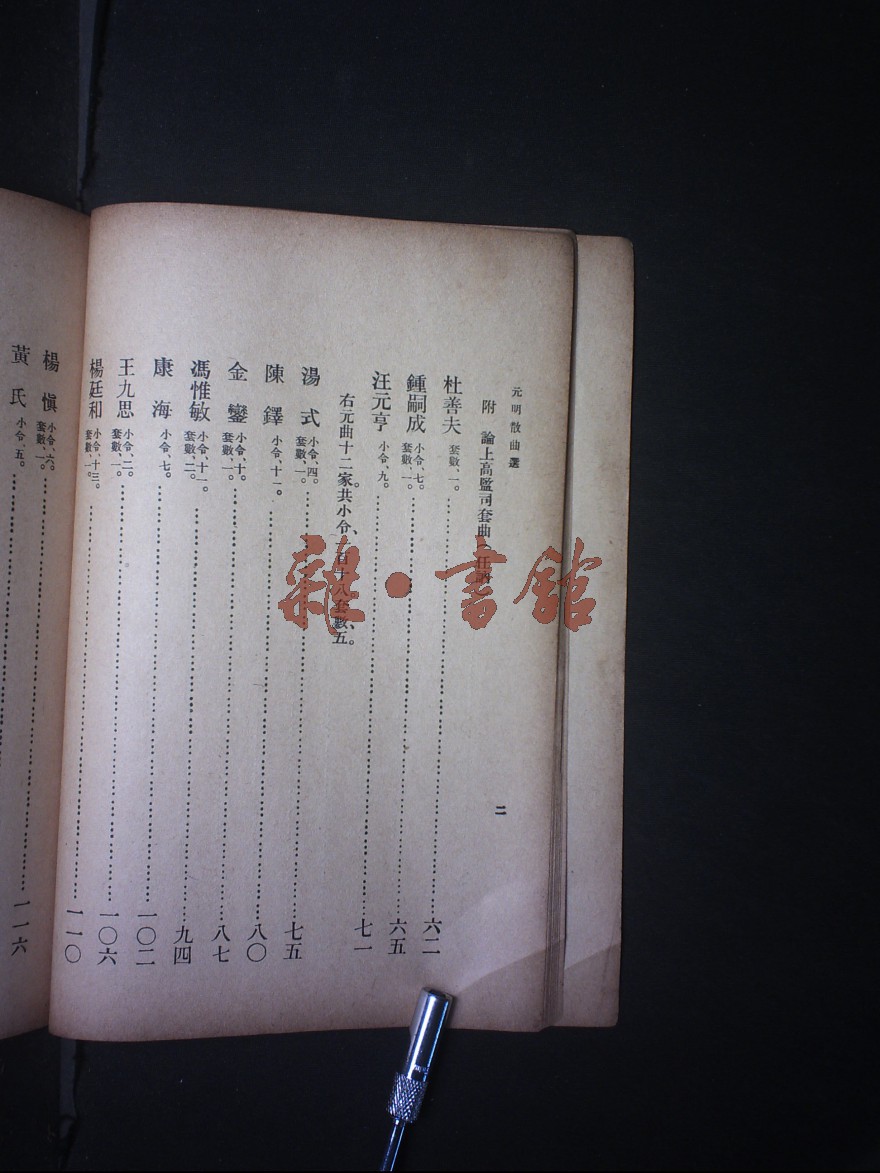 元明散曲選
二
附 論上高監司套曲 任訥
杜善夫 套數、一。 六二
鍾嗣成 小令、七。套數、一。 六五
汪元亨 小令、九。 七一
右元曲十二家共小令、一百十八套數、五。
湯式 小令、四。套數、一。 七五
陳鐸 小令、十一。 八〇
金鑾 小令、十。套數、一。 八七
馮惟敏 小令、十一。套數、二。 九四
康海 小令、七。 一〇二
王九思 小令、二。套數、一。 一〇六
楊廷和 小令、十三。套數、一。 一一〇
楊慎 小令、六。套數、一。 一一六
黃氏 小令、五。
雜·書館